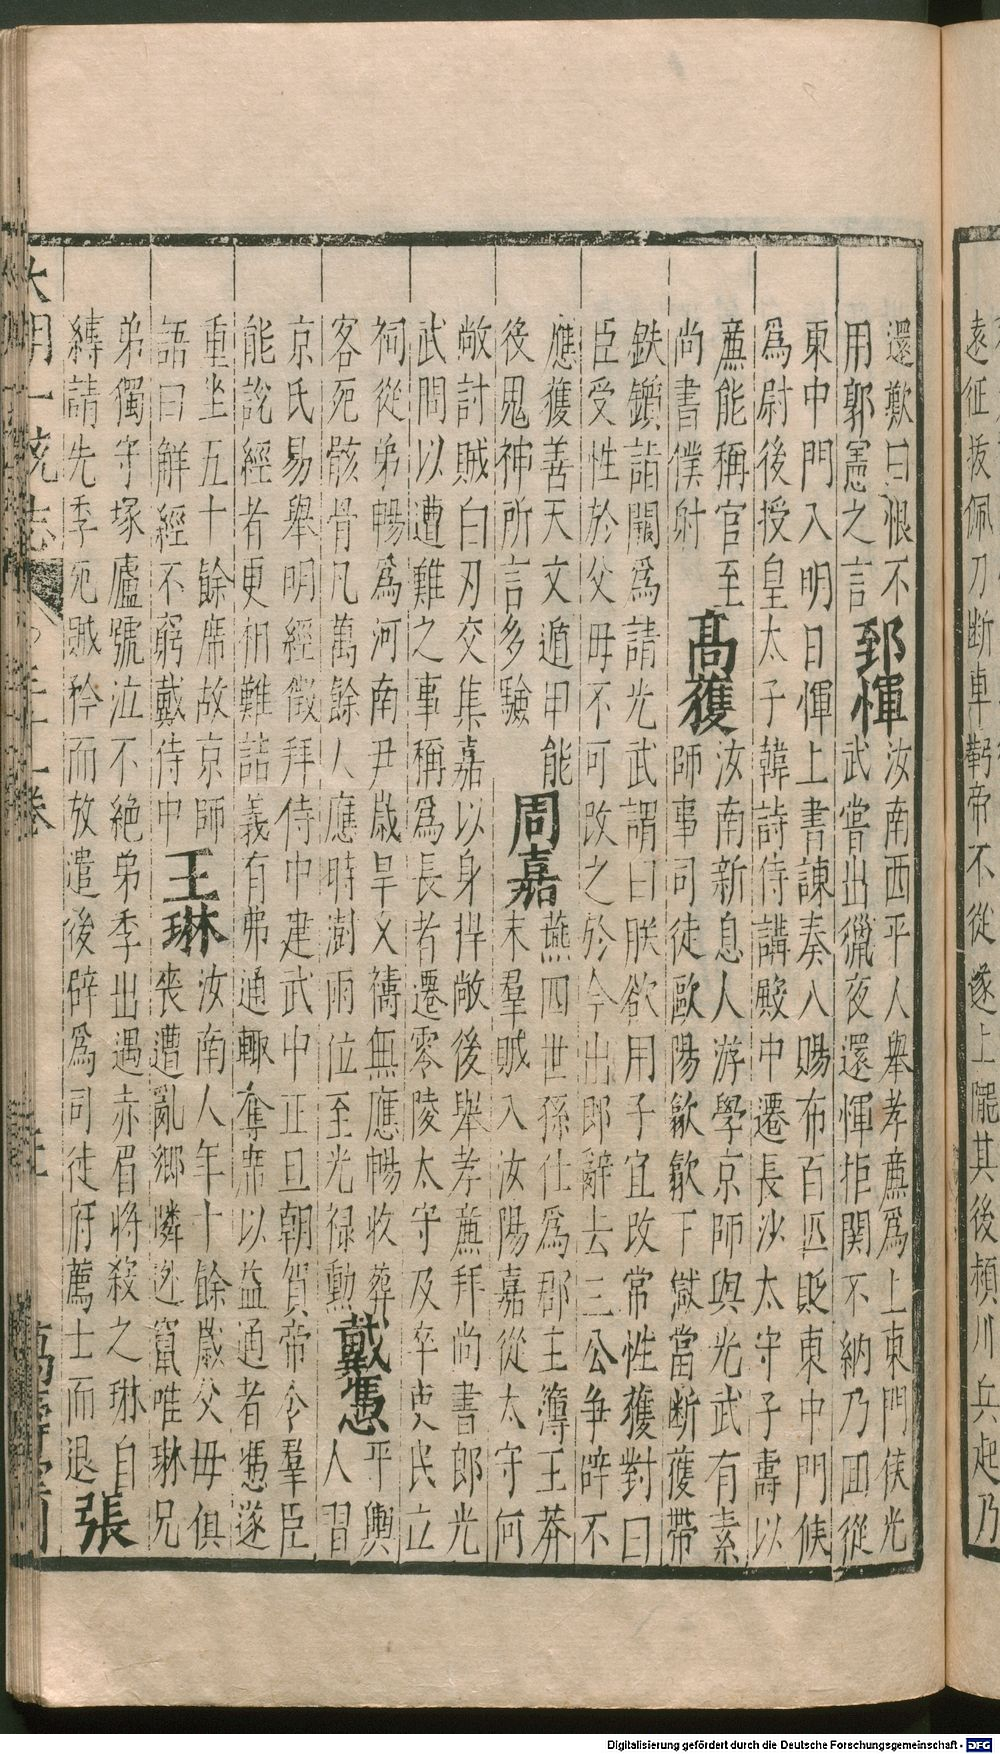 遠征拔佩刀斷車靷帝不從遂上隴其後潁川兵起乃
還歎曰恨不
用郭憲之言
郅惲
汝南西平人舉孝廉爲上東門候光
武嘗出獵夜還惲拒關不納乃回從
東中門入明日惲上書諫奏入賜布百匹貶東中門候
爲尉後授皇太子韓詩侍講殿中遷長沙太守子壽以
廉能稱官至
尚書僕射
高獲
汝南新息人游學京師與光武有素
師事司徒歐陽歙歙下獄當斷獲帶
鈇鑕詣闕爲請光武謂曰朕欲用子宜改常性獲對曰
臣受性於父母不可改之於今出郎辭去三公争辟不
應獲善天文遁甲能
後鬼神所言多驗
周嘉
燕四世孫仕爲郡主簿王莽
末羣賊入汝陽嘉從太守何
敞討賊白刃交集嘉以身捍敞後舉孝廉拜尚書郎光
武問以遭難之事稱爲長者遷零陵太守及卒吏民立
祠從弟暢爲河南尹歲旱久禱無應暢收葬
客死骸骨凡萬餘人應時澍雨位至光祿勳
戴憑
平輿
人習
京氏易舉明經徵拜侍中建武中正旦朝賀帝令羣臣
能說經者更相難詰義有弗通輒奪席以益通者憑遂
重坐五十餘席故京師
語曰解經不窮戴侍中
王琳
汝南人年十餘歲父母俱
喪遭亂鄉憐迯竄唯琳兄
弟獨守塚廬號泣不絕弟季出遇赤眉將殺之琳自
縛請先季死賊矜而放遣後辟爲司徒府薦士而退
張
大明一統志
萬壽堂刊
Digitalisierung gefördert durch die Deutsche Forschungsgemeinschaft - DFG